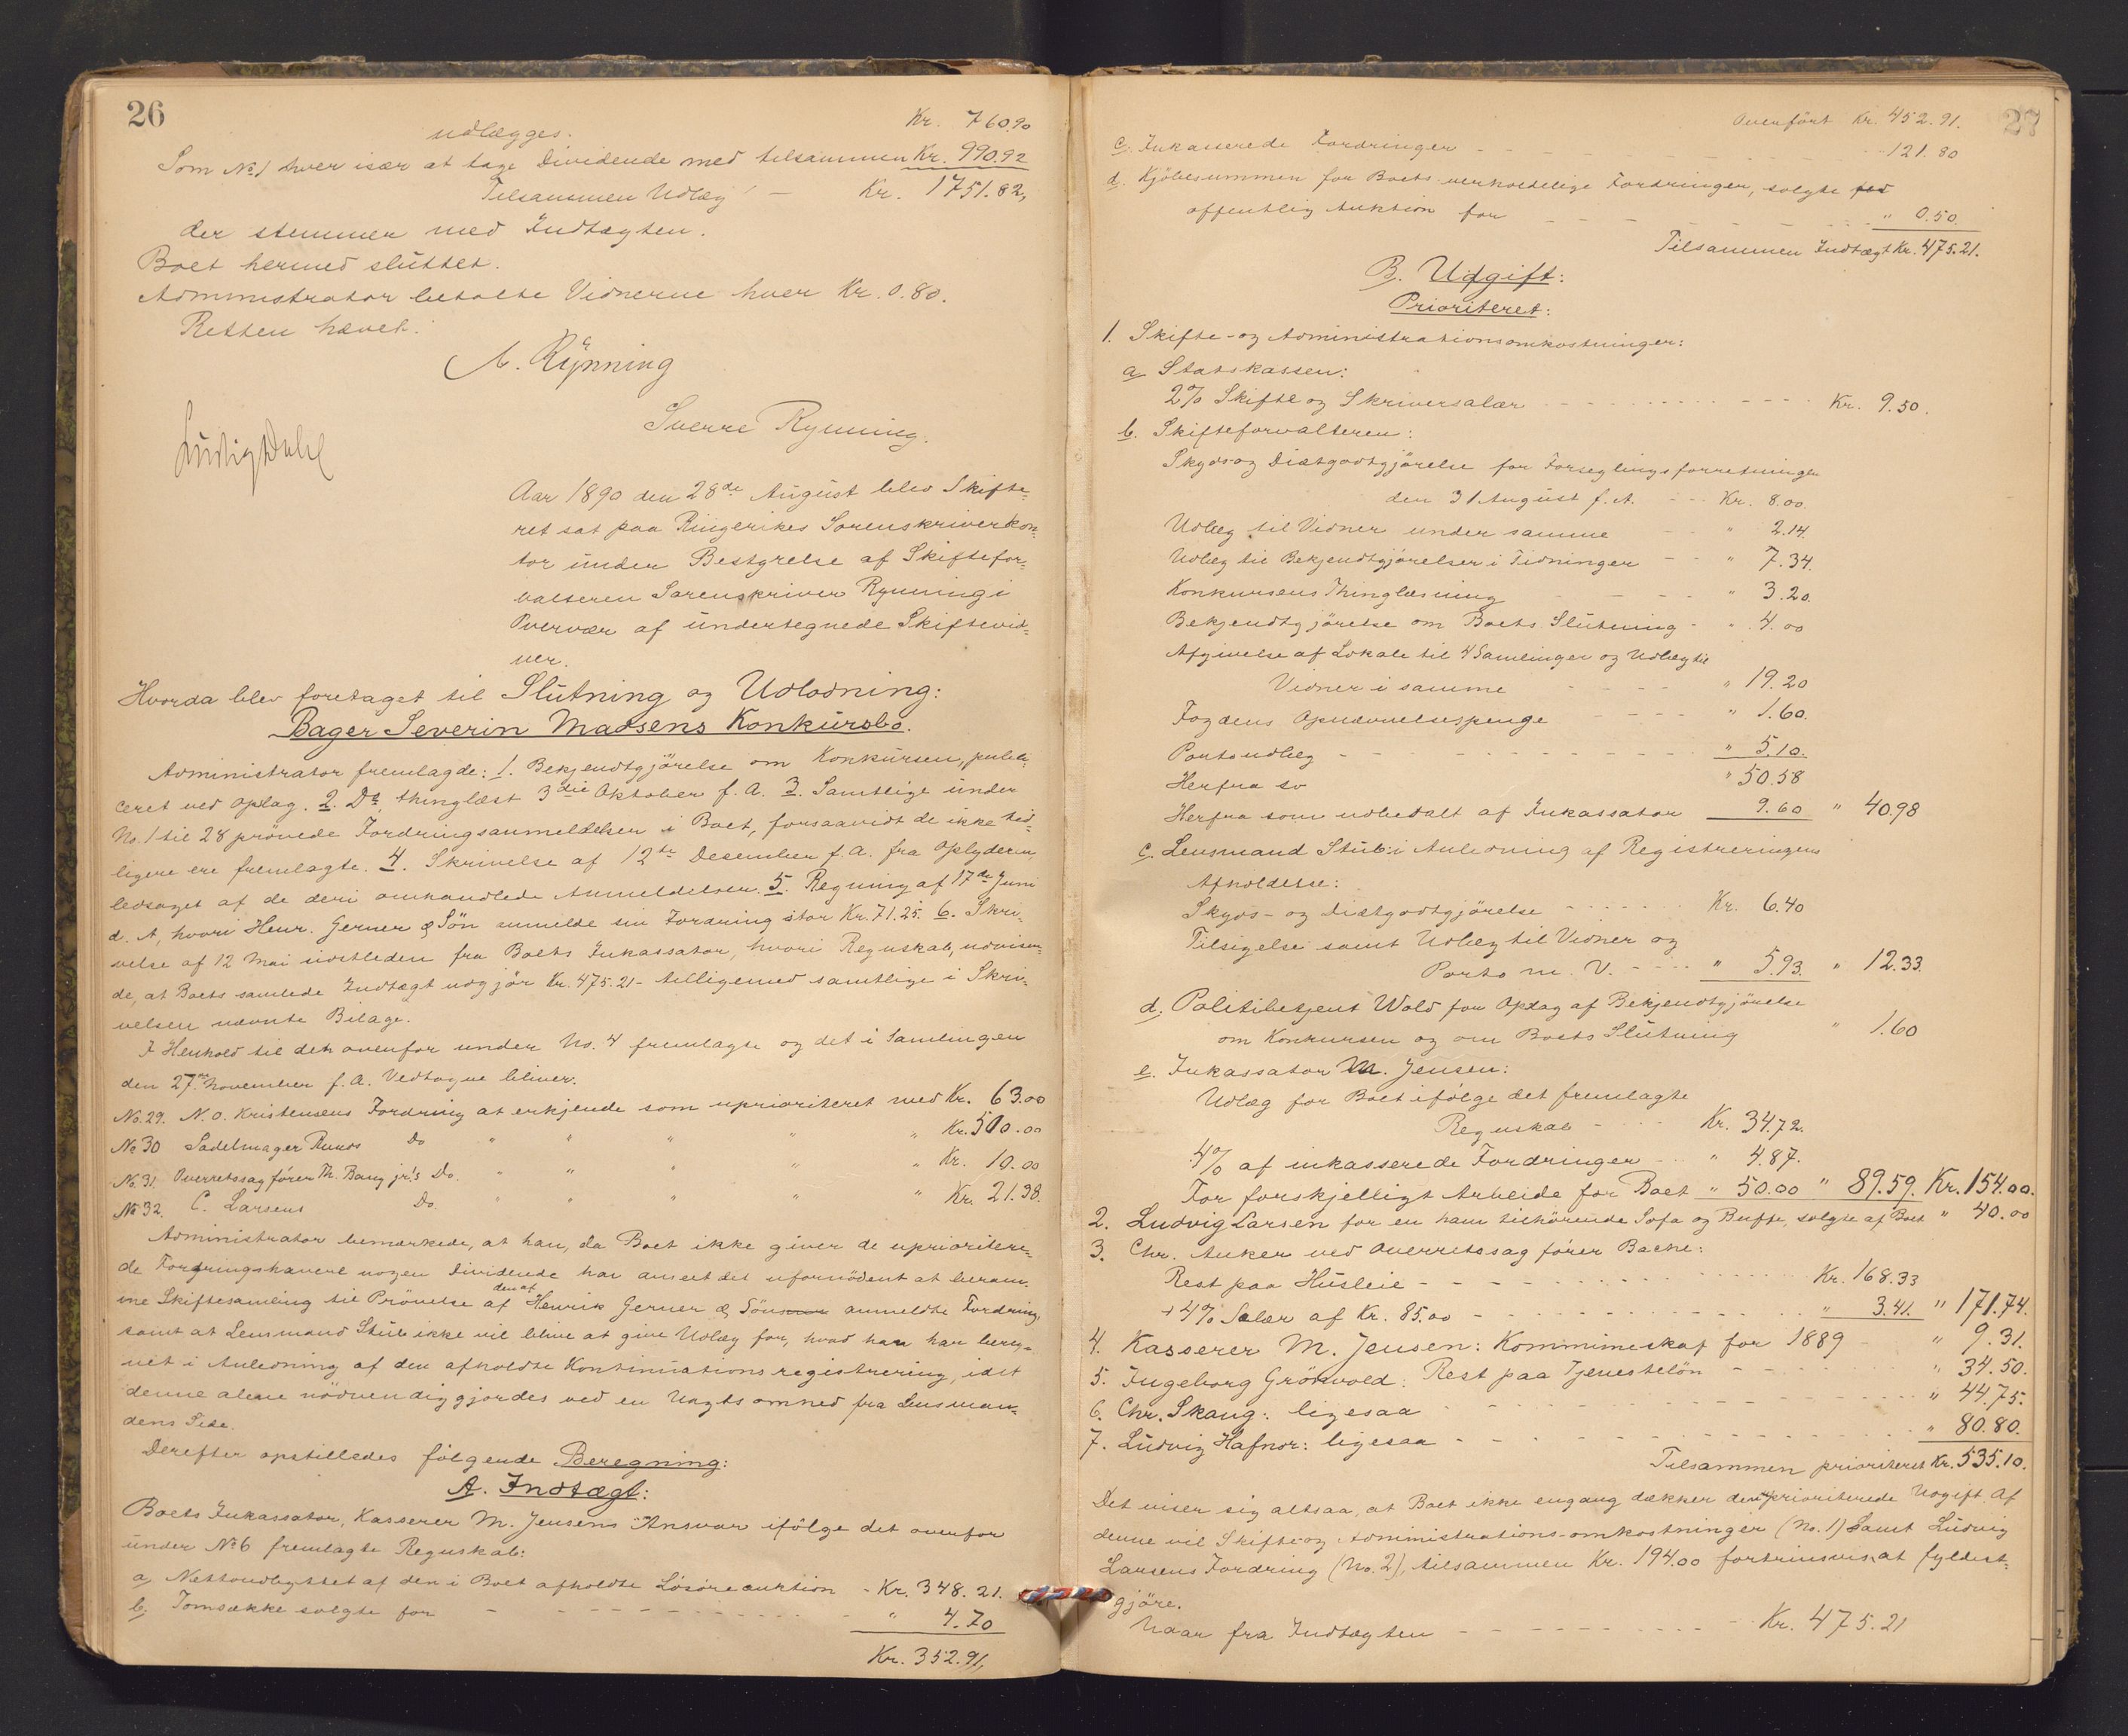 26
Kr. 760.90
udlægges.
Som No 1 hver især at tage Dividende med tilsammen Kr. 990.92
Tilsammen Udlæg - Kr. 1751.82,
der stemmer med Indtægten.
Boet hermed sluttet.
Administrator betalte Vidnerne hver Kr. 0.80.
Retten hævet.
A. Rynning
Sverre Rynning.
Ludvig Dahl
Aar 1890 den 28de August blev Skifte-
ret sat paa Ringerikes Sorenskriverkon-
tor under Bestyrelse af Skiftefor-
valteren Sorenskriver Rynning i
Overvær af undertegnede Skiftevid-
ner.
Hvorda blev foretaget til Slutning og Udlodning:
Bager Severin Madsens Konkursbo.
Administrator fremlagde: 1. Bekjendtgjörelse om Konkursen, publi-
ceret ved Opslag. 2. Do, thinglæst 3die Oktober f. A. 3. Samtlige under
No. 1 til 28 prövede Fordringsanmeldelser i Boet, forsaavidt de ikke tid-
ligere ere fremlagte. 4. Skrivelse af 12te Desember f. A. fra Oplyderen,
ledsaget af de deri omhandlede Anmeldelser. 5. Regning af 17de Juni
d. A, hvori Henr. Gerner & Sön anmelde sin Fordring stor Kr. 71.25. 6. Skri-
velse af 12 Mai sidstleden fra Boets Inkassator, hvori Regnskab, udvisen-
de, at Boets samlede Indtægt udgjör Kr. 475.21 - tilligemed samtlige i Skri-
velsen nævnte Bilage.
I Henhold til det ovenfor under No. 4 fremlagte og det i Samlingen
den 27de November f. A. Vedtagne bliver.
No. 29. N. O. Kristensens Fordring at erkjende som uprioriteret med Kr. 63.00
No 30 Sadelmager Ruuds Do " " " " " Kr. 510.00
No. 31. Overretssagförer Th. Bang jr's Do. " " " " " Kr. 10.00
No 32. C. Larsens Do. " " " " " Kr. 21.98.
Administrator bemærkede, at han, da Boet ikke giver de uprioritere-
de Fordringshavere nogen Dividende har anseet det ufornödent at beram-
me Skiftesamling til Prövelse af den af Henrik Gerner & Sön anmeldte Fordring,
samt at Lensmand Stub ikke vil blive at give Udlæg for, hvad han har bereg-
net i Anledning af den afholdte Kontinuationsregistrering, idet
denne alene nödvendiggjordes ved en Uagtsomhed fra Lensman-
dens Side.
Derefter opstilledes fölgende Beregning:
A. Indtægt:
Boets Inkassator, Kasserer M. Jensens Ansvar ifölge det ovenfor
under No 6 fremlagte Regnskab:
a, Nettoudbyttet af den i Boet afholdte Lösöreauktion - Kr. 348.21.
b, Tomsække solgte for - " 4.70
Kr. 352.91,
27
Overfört Kr. 452.91.
c, Inkasserede Fordringer - 121.80
d. Kjöbesummen for Boets uerholdelige Fordringer, solgte ved
offentlig Auktion for - " 0.50.
Tilsammen Indtægt Kr. 475.21.
B. Udgift:
Prioriteret:
1. Skifte- og Administrationsomkostninger:
a, Statskassen:
2% Skifte og Skriversalær - Kr. 9.50.
b. Skifteforvalteren:
Skyds og Diætgodtgjörelse for Forseglingsforretningen
den 31 August f. A. - Kr. 8.00.
Udlæg til Vidner under samme - " 2.14.
Udlæg til Bekjendtgjörelser i Tidninger - " 7.34.
Konkursens Thinglæsning - " 3.20.
Bekjendtgjörelse om Boets Slutning - " 4.00
Afgivelse af Lokale til 4 Samlinger og Udlæg til
Vidner i samme - " 19.20
Fogdens Opnævnelsespenge - " 1.60.
Portoudlæg - " 5.10.
Herfra so " 50.58
Herfra som udbetalt af Inkassator 9.60 " 40.98
c. Lensmand Stub: i Anledning af Registreringens
Afholdelse:
Skyds- og Diætgodtgjörelse - Kr. 6.40
Tilsigelse samt Udlæg til Vidner og
Porto m. V. - " 5.93. " 12.33.
d. Politibetjent Wold for Opslag af Bekjendtgjörelse
om Konkursen og om Boets Slutning " 1.60
e. Inkassator M. Jensen:
Udlæg for Boet ifölge det fremlagte
Regnskab - Kr. 34.72.
4% af inkasserede Fordringer - " 4.87.
For forskjelligt Arbeide for Boet " 50.00 " 89.59. Kr. 154.00.
2. Ludvig Larsen for en ham tilhörende Sofa og Buffe, solgte af Boet " 40.00
3. Chr. Anker ved Overretssagförer Bache:
Rest paa Husleie - Kr. 168.33
+ 4% Salær af Kr. 85.00 - " 3.41. " 171.74.
4. Kasserer M. Jensen: Kommuneskat for 1889 - " 9.31.
5. Ingeborg Grönvold: Rest paa Tjenestelön - " 34.50.
6. Chr. Skaug: ligesaa - " 44.75.
7. Ludvig Hafnor: ligesaa - " 80.80.
Tilsammen prioriteret Kr. 535.10.
Det viser sig altsaa, at Boet ikke engang dækker den prioriterede Udgift. Af
denne vil Skifte- og Administrations-omkostninger (No. 1) samt Ludvig
Larsens Fordring (No. 2), tilsammen Kr. 194.00 fortrinsvis at fyldest-
gjöre.
Naar fra Indtægten - Kr. 475.21